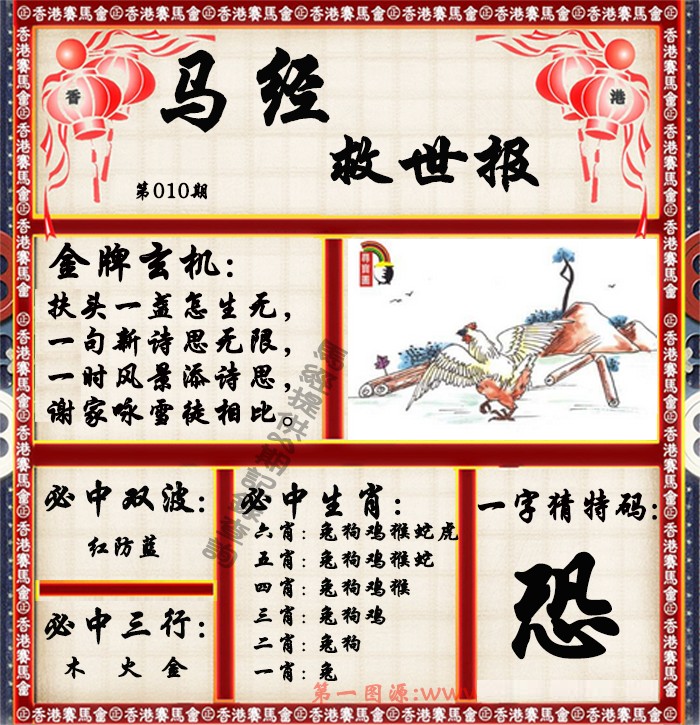 香港賽馬會
香
港
马经
救世报
第010期
金牌玄机：
扶头一盏怎生无，
一句新诗思无限，
一时风景添诗思，
谢家咏雪徒相比。
尋寶圖
必中双波：
红防蓝
必中三行：
木 火 金
必中生肖：
六肖：兔狗鸡猴蛇虎
五肖：兔狗鸡猴蛇
四肖：兔狗鸡猴
三肖：兔狗鸡
二肖：兔狗
一肖：兔
一字猜特码：
恐
第一图源:www